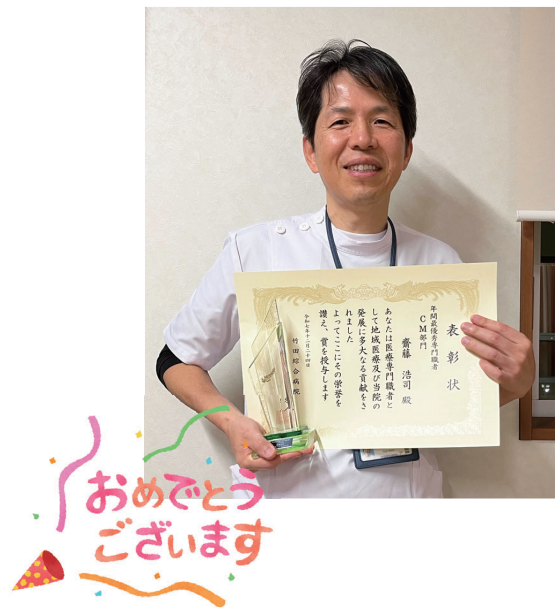 表彰状
年間最優秀専門職者
CM部門
齋藤 浩司 殿
あなたは医療専門職者と
して地域医療及び当院の
発展に多大なる貢献をさ
れました
よってここにその栄誉を
讃え、賞を授与します
令和七年十二月二十四日
竹田綜合病院
おめでとう
ございます